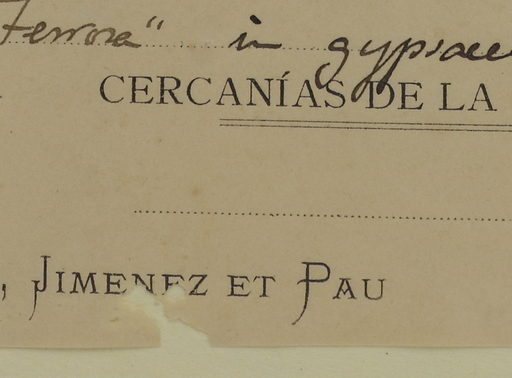 Ferrosa" in gypsaceis
CERCANÍAS DE LA
, JIMENEZ ET PAU